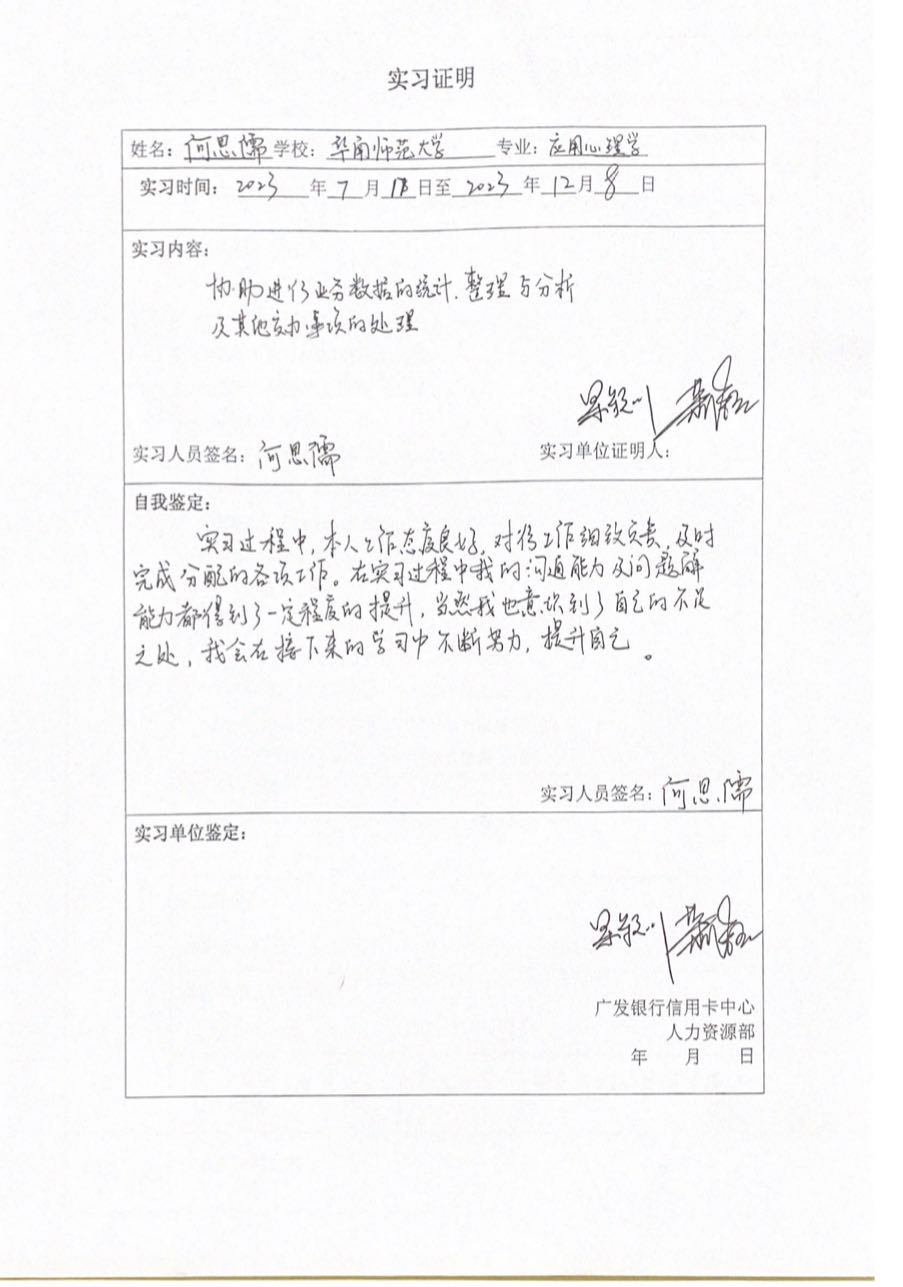 实习证明
姓名：何思儒 学校：华南师范大学 专业：应用心理学
实习时间：2023年7月18日至2023年12月8日
实习内容：
协助进行业务数据的统计、整理与分析
及其他交办事项的处理
实习人员签名：何思儒 实习单位证明人：
自我鉴定：
实习过程中，本人工作态度良好，对待工作细致负责，及时
完成分配的各项工作。在实习过程中我的沟通能力及问题解
能力都得到了一定程度的提升，当然我也意识到了自己的不足
之处，我会在接下来的学习中不断努力，提升自己。
实习人员签名：何思儒
实习单位鉴定：
广发银行信用卡中心
人力资源部
年 月 日